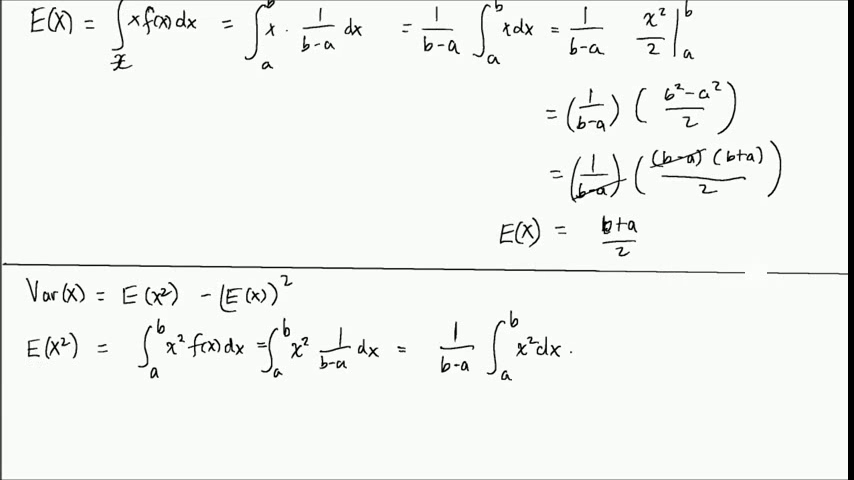 E(X) = ∫_x x f(x) dx = ∫_a^b x · 1/(b-a) dx = 1/(b-a) ∫_a^b x dx = 1/(b-a) x²/2 |_a^b
= (1/(b-a)) ( (b²-a²)/2 )
= (1/(b-a)) ( (b-a)(b+a)/2 )
E(X) = (b+a)/2
Var(X) = E(x²) - (E(x))²
E(X²) = ∫_a^b x² f(x) dx = ∫_a^b x² 1/(b-a) dx = 1/(b-a) ∫_a^b x² dx .